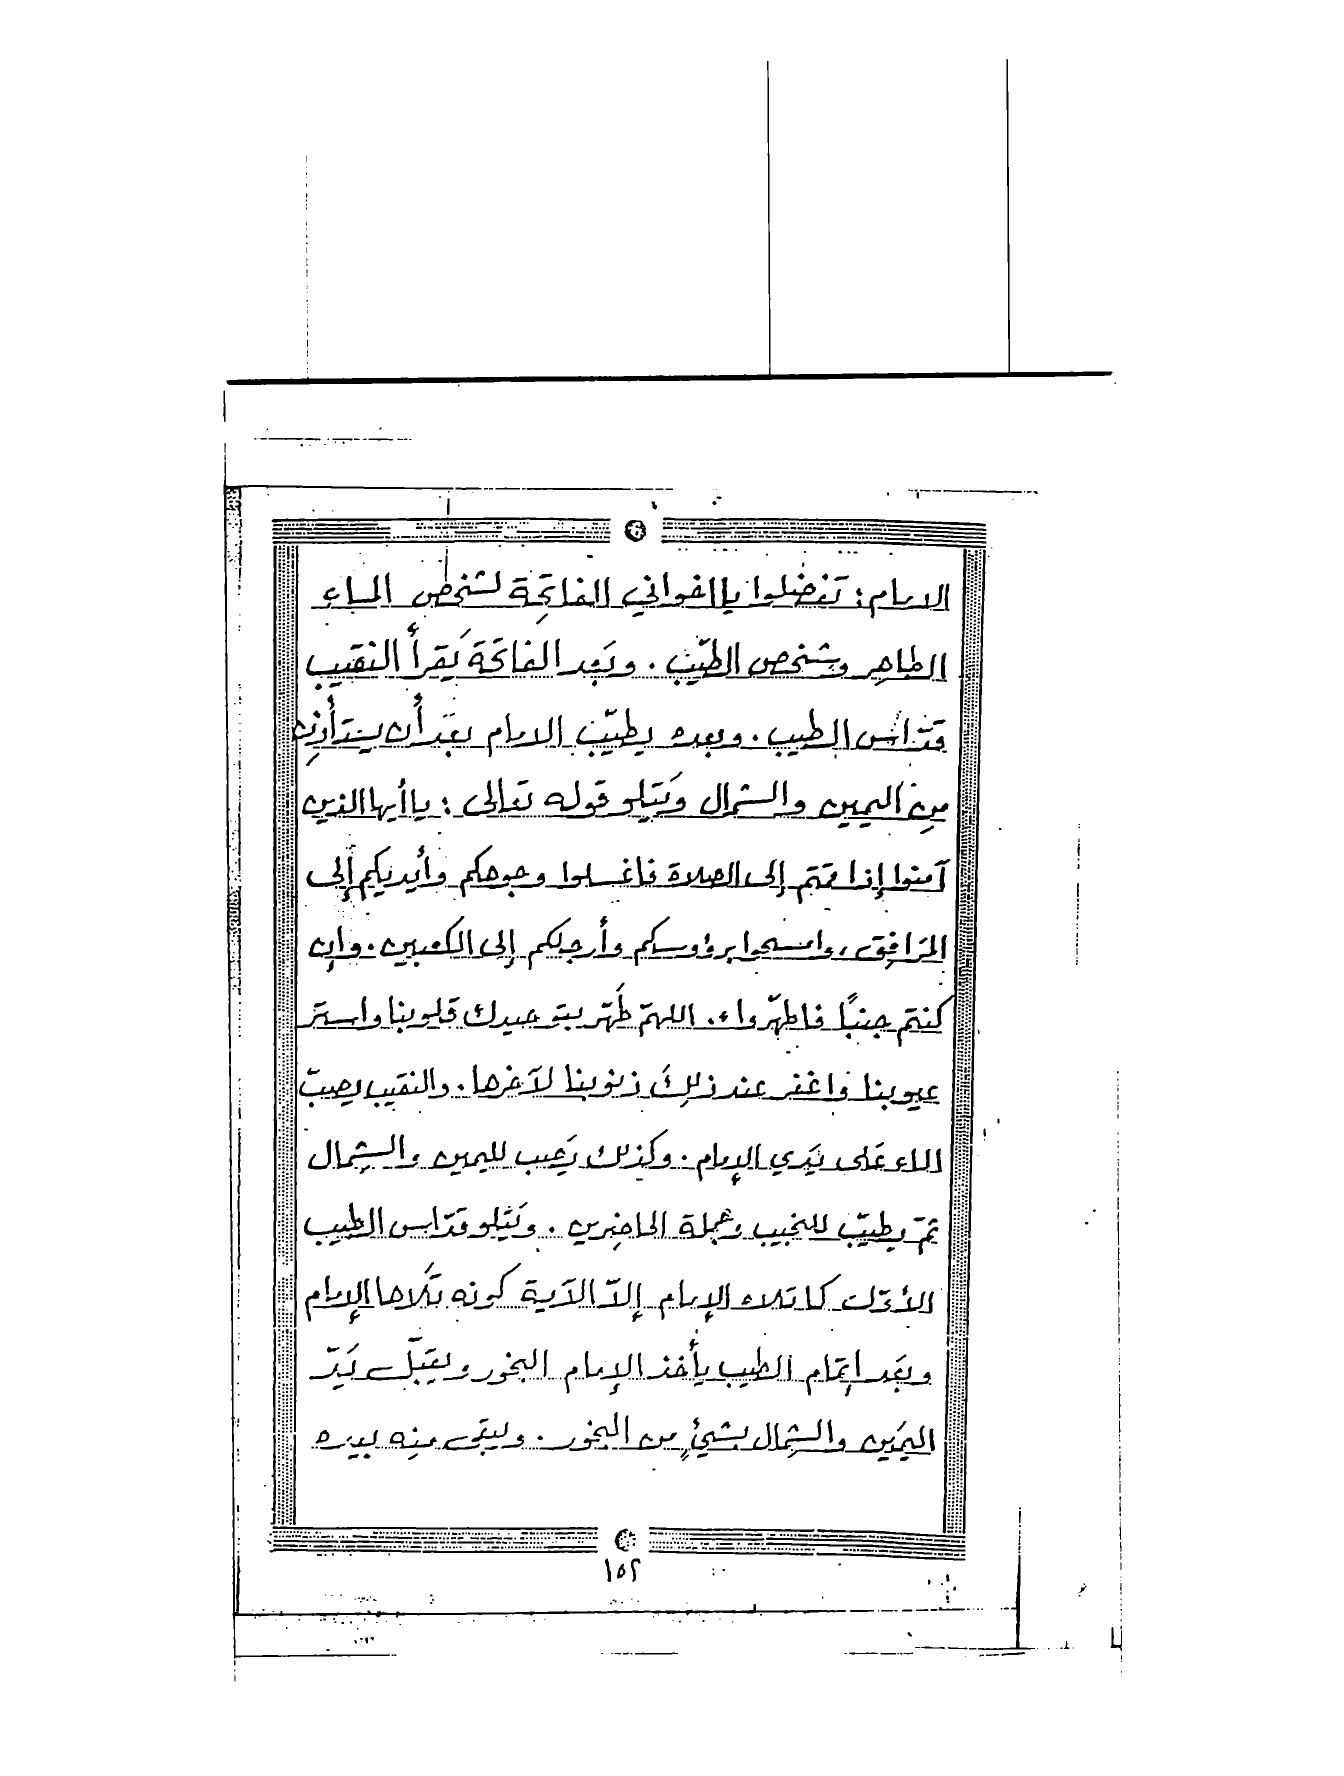 الامام: تفضلوا يا اخواني الفاتحة لشخص الماء
الطاهر وشخص الطيّب. وبَعد الفاتحَة يَقرأ النقيب
قدّاس الطيب. وبعده يطيّب الامام بعَد أن يستأذن
مِن اليمين والشمال وَيَتلو قوله تعَالى: يا أيها الذين
آمنوا إذا قمتم إلى الصلاة فاغسلوا وجوهكم وأيديكم إلى
المرَافِق، وامسحوا برؤوسكم وأرجلكم إلى الكعبين. وإن
كنتم جنبًا فاطهّروا،. اللهمّ طَهّر بتوحيدك قلوبنا واستر
عيوبنا واغفر عند ذلِكَ ذنوبنا لآخرها. والنقيب يصبّ
الماء عَلى يَدي الإمام. وكذلك يَصب لليمين والشِمال
ثمّ يطيّب للنجيب وجملة الحاضِرين. وَيَتلو قدّاس الطيب
الأوّل كما تلاه الإمام إلاّ الآية كونه تَلاها الإمام
وبعَد إتمام الطيب يأخذ الإمام البخور ويقبّل يَدّ
اليمَين والشِمال بشيئٍ من البخور. ويبقى منِه بيده
١٥٢